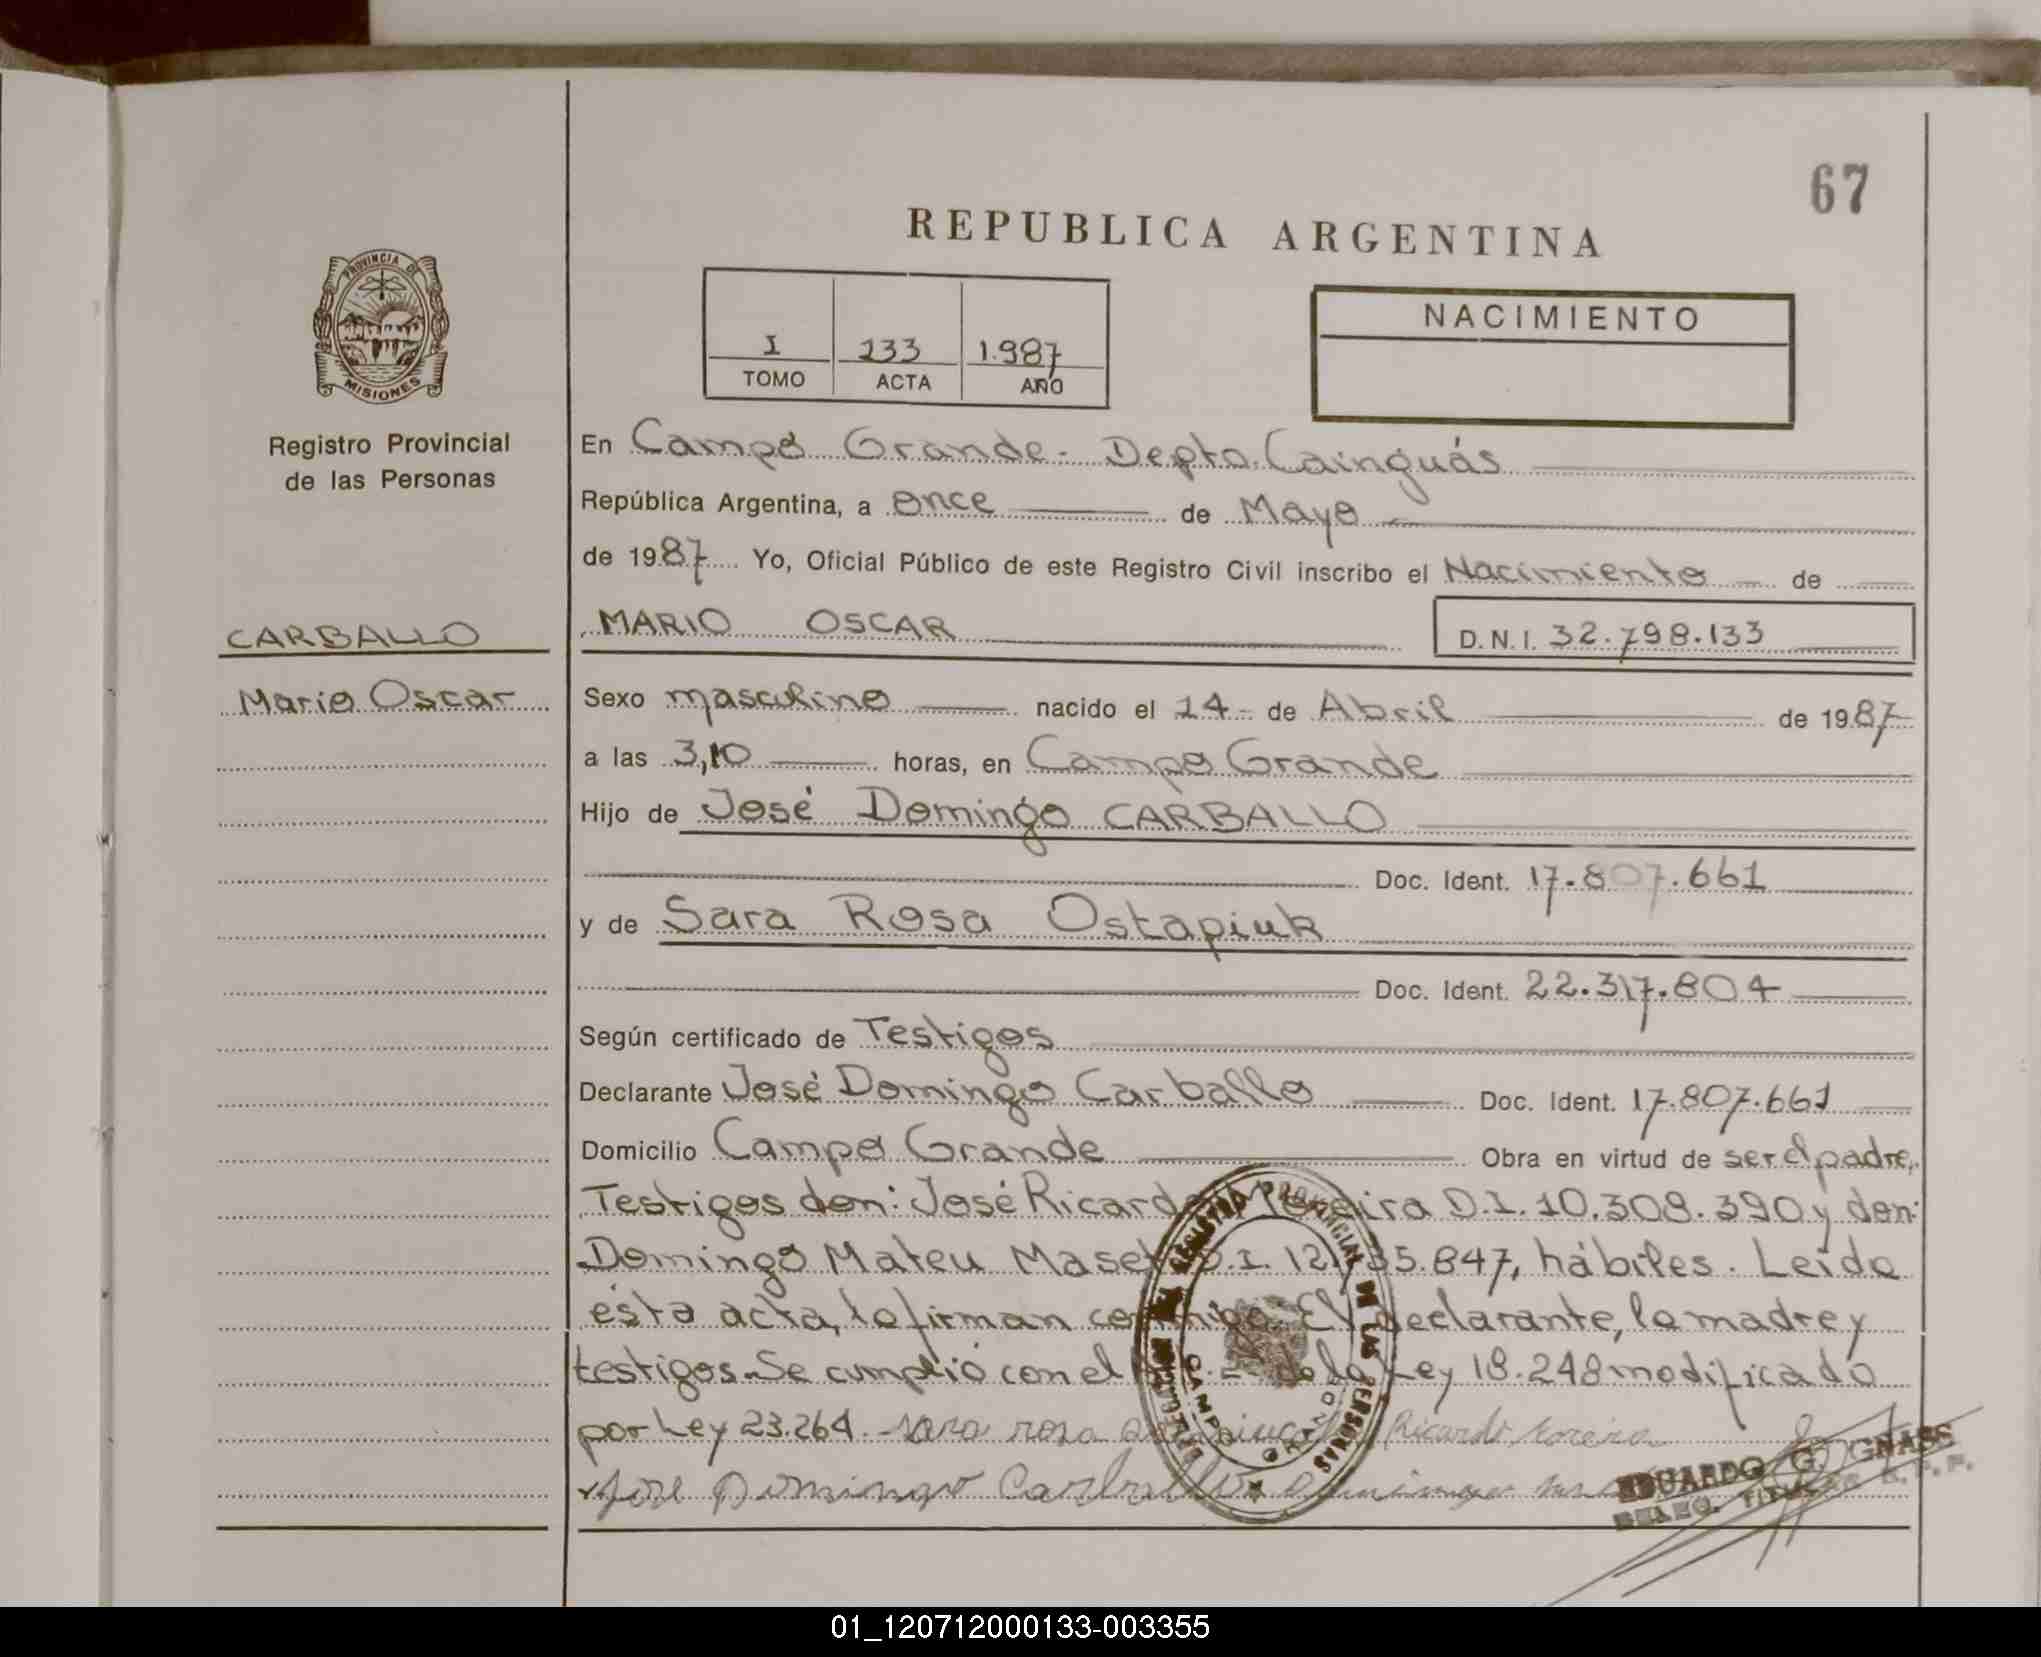 67
REPUBLICA ARGENTINA
PROVINCIA DE
MISIONES
Registro Provincial
de las Personas
I 133 1.987
TOMO ACTA AÑO
NACIMIENTO
En Campo Grande - Depto. Cainguás
República Argentina, a once de Mayo
de 1987 Yo, Oficial Público de este Registro Civil inscribo el Nacimiento de
CARBALLO
MARIO OSCAR D.N.I. 32.798.133
Mario Oscar
Sexo masculino nacido el 14 - de Abril de 1987
a las 3,10 horas, en Campo Grande
Hijo de José Domingo CARBALLO
Doc. Ident. 17.807.661
y de Sara Rosa Ostapiuk
Doc. Ident. 22.317.804
Según certificado de Testigos
Declarante José Domingo Carballo Doc. Ident. 17.807.661
Domicilio Campo Grande Obra en virtud de ser el padre,
Testigos don: José Ricardo D.I. 10.308.390 y don:
Domingo Mateu D.I. 35.847, hábiles. Leída
ésta acta, la firman conmigo El declarante, la madre y
testigos. Se cumplió con el de la Ley 18.248 modificado
por Ley 23.264. sara rosa Ricardo
José Domingo Carballo
DELEGACION DEL REGISTRO PROVINCIAL DE LAS PERSONAS
CAMPO GRANDE
EDUARDO G. GNASS
DELEG. TITULAR R. P. P.
01_120712000133-003355